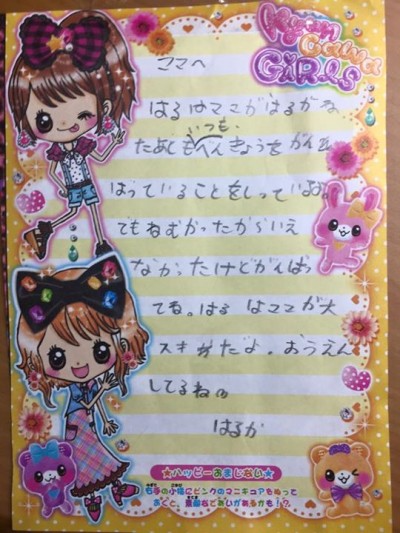 GiRLS
ママへ
はるはママがはるかな
いつも
べんきょうをがん
はっていることをしっているよ
でもねむかったからいえ
なかったけどがんばっ
てね。はるはママが大
スキだよ。おうえん
してるね
はるか
★ハッピーおまじない★
右手の小指にピンクのマニキュアをぬって
おくと、素敵な出あいがあるかも!?